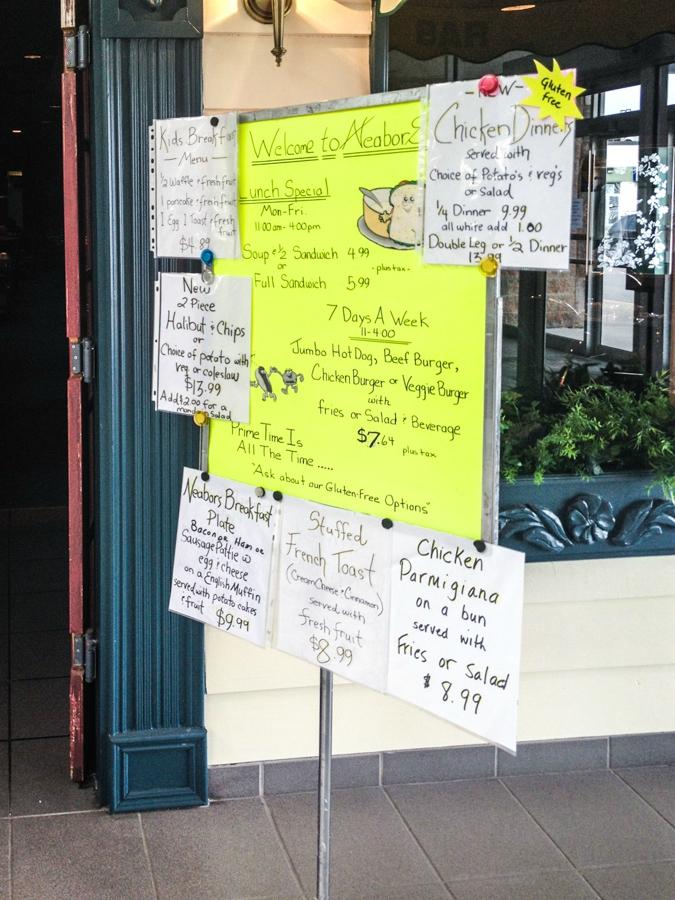 BAR
Kids Breakfast
Menu
1/2 Waffle & fresh fruit
1 pancake & fresh fruit
1 Egg 1 Toast & fresh
fruit
$4.89
Welcome to Neabors
Lunch Special
Mon-Fri.
11:00 am - 4:00 pm
Soup & 1/2 Sandwich 4.99
or
- plus tax -
Full Sandwich 5.99
7 Days A Week
11-4:00
Jumbo Hot Dog, Beef Burger,
Chicken Burger or Veggie Burger
with
fries or Salad & Beverage
$7.64 plus tax
Prime Time Is
All The Time .....
"Ask about our Gluten-Free Options"
-NEW-
Gluten
free
Chicken Dinners
served with
Choice of Potato's & veg's
or Salad
1/4 Dinner 9.99
all white add 1.00
Double Leg or 1/2 Dinner
13.99
New
2 Piece
Halibut & Chips
or
Choice of potato with
veg or coleslaw
$13.99
Add $2.00 for a
salad
Neabors Breakfast
Plate
Bacon or Ham or
Sausage Pattie w
egg & cheese
on a English Muffin
served with potato cakes
& fruit $9.99
Stuffed
French Toast
(Cream Cheese & Cinnamon)
served with
fresh fruit
$8.99
Chicken
Parmigiana
on a bun
served with
Fries or Salad
$8.99